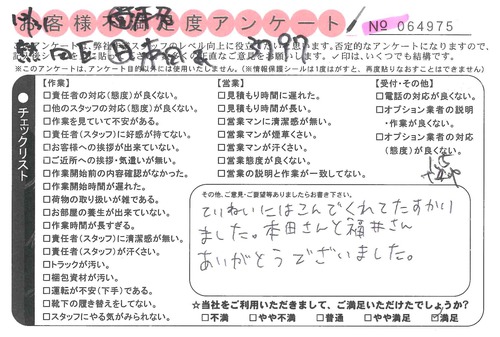 お客様不満足度アンケート
№ 064975
※このアンケートは、アンケート目的以外には使用いたしません。(※情報保護シールは1度はがすと、再度貼りなおすことはできません)
チェックリスト
【作業】
□責任者の対応(態度)が良くない。
□他のスタッフの対応(態度)が良くない。
□作業を見ていて不安がある。
□責任者(スタッフ)に好感が持てない。
□お客様への挨拶が出来ていない。
□ご近所への挨拶・気遣いが無い。
□作業開始前の内容確認がなかった。
□作業開始時間が遅れた。
□荷物の取り扱いが雑である。
□お部屋の養生が出来ていない。
□作業時間が長すぎる。
□責任者(スタッフ)に清潔感が無い。
□責任者(スタッフ)が汗くさい。
□トラックが汚い。
□梱包資材が汚い。
□運転が不安(下手)である。
□靴下の履き替えをしてない。
□スタッフにやる気がみられない。
【営業】
□見積もり時間に遅れた。
□見積もり時間が長い。
□営業マンに清潔感が無い。
□営業マンが煙草くさい。
□営業マンが汗くさい。
□営業態度が良くない。
□営業の説明と作業が一致してない。
【受付・その他】
□電話の対応が良くない。
□オプション業者の説明
・作業が良くない。
□オプション業者の対応
(態度)が良くない。
その他、ご意見・ご要望等ありましたらお書き下さい。
ていねいにはこんでくれてたすかり
ました。本田さんと福井さん
ありがとうございました。
☆当社をご利用いただきまして、ご満足いただけたでしょうか?
□不満 □やや不満 □普通 □やや満足 ☑満足